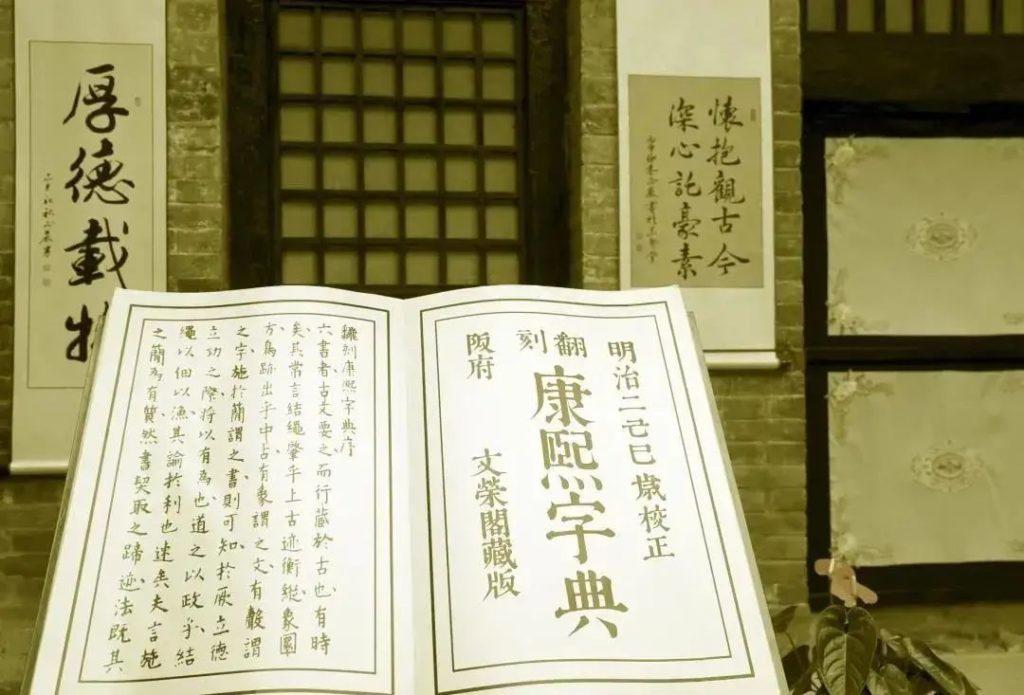 厚德載物
懷抱觀古今
深心託豪素
明治二己巳歲校正
翻刻
康熙字典
阪府
文榮閣藏版
刻康熙字典序
六書者古文要之而行藏於古也有時
矣其常言結繩肇乎上古迹衡縱象圜
方鳥跡出乎中占有象謂之文有謂
之字施於簡謂之書則可知於厥立德
立功之際將以有為也道之以政乎結
繩以佃以漁其論於利也速矣夫言施
之簡為有質然書契取之蹄迹法既其